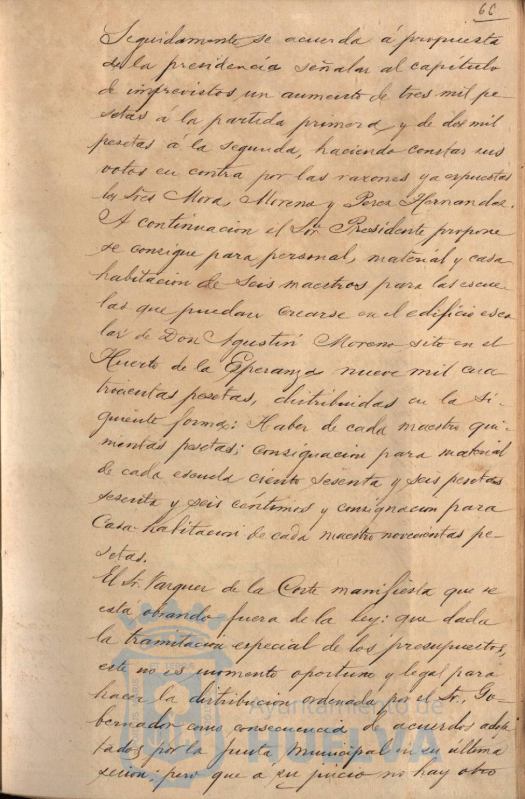 60
Seguidamente se acuerda á propuesta
de la presidencia señalar al capitulo
de imprevistos, un aumento de tres mil pe-
setas á la partida primera, y de dos mil
pesetas á la segunda, haciendo constar sus
votos en contra por las razones ya expuestas
los Sres Mora, Moreno y Perez Hernandez.
A continuacion el Sor Presidente propone
se consigne para personal, material y casa
habitacion de seis maestros para las escue-
las que puedan crearse en el edificio esco-
lar de Don Agustin Moreno sito en el
Huerto de la Esperanza nueve mil cua-
trocientas pesetas, distribuidas en la si-
guiente forma: Haber de cada maestro qui-
nientas pesetas; consignacion para material
de cada escuela ciento sesenta y seis pesetas
sesenta y seis céntimos y consignacion para
Casa-habitacion de cada maestro novecientas pe-
setas.
El Sr. Vazquez de la Corte manifiesta que se
está obrando fuera de la ley: que dada
la tramitacion especial de los presupuestos,
este no es momento oportuno y legal para
hacer la distribucion ordenada por el Sr. Go-
bernador como consecuencia de acuerdos adop-
tados por la Junta Municipal en su ultima
sesion; pero que á su juicio no hay otro
Ayuntamiento de
HUELVA